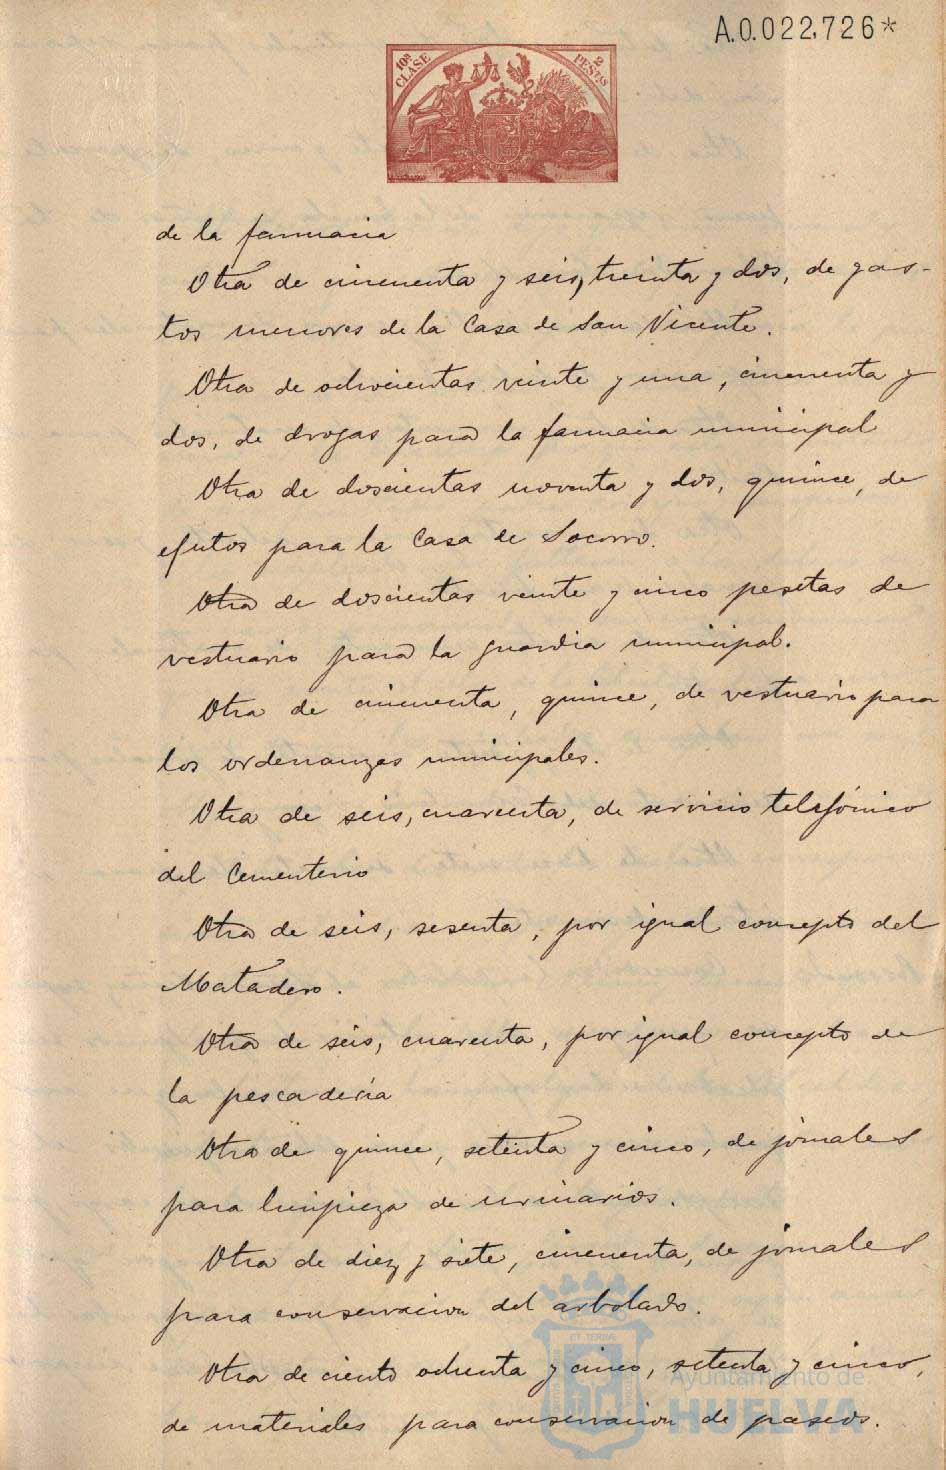 A.0.022,726*
10ª CLASE
2 PESETAS
de la farmacia
Otra de cincuenta y seis, treinta y dos, de gas-
tos menores de la Casa de San Vicente.
Otra de ochocientas veinte y una, cincuenta y
dos, de drogas para la farmacia municipal
Otra de doscientas noventa y dos, quince, de
efectos para la Casa de Socorro.
Otra de doscientas veinte y cinco pesetas de
vestuario para la guardia municipal.
Otra de cincuenta, quince, de vestuario para
los ordenanzas municipales.
Otra de seis, cuarenta, de servicio telefónico
del Cementerio
Otra de seis, sesenta, por igual concepto del
Matadero.
Otra de seis, cuarenta, por igual concepto de
la pescadería
Otra de quince, setenta y cinco, de jornales
para limpieza de urinarios.
Otra de diez y siete, cincuenta, de jornales
para conservacion del arbolado.
Otra de ciento ochenta y cinco, setenta y cinco,
de materiales para conservacion de paseos.
Ayuntamiento de
HUELVA